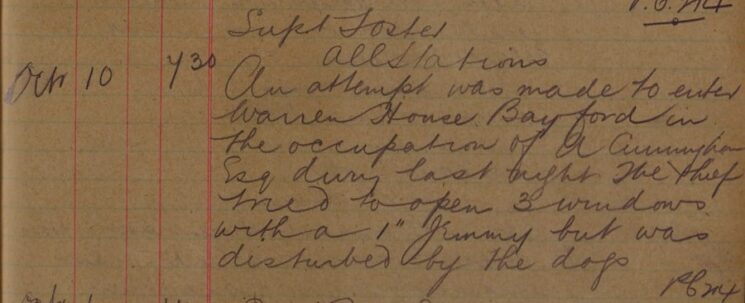 Supt Foster
All Stations
Oct 10 7 30 An attempt was made to enter
Warren House Bayford in
the occupation of A Cunningham
Esq during last night The thief
tried to open 3 windows
with a 1" Jemmy but was
disturbed by the dogs